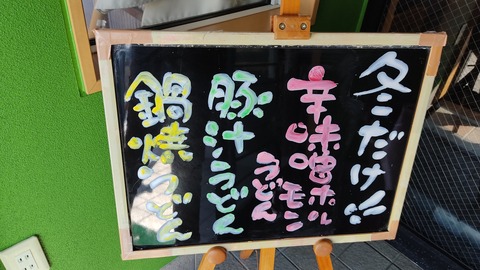 冬だけ!!
辛味噌ホルモン
うどん
豚汁うどん
鍋焼うどん